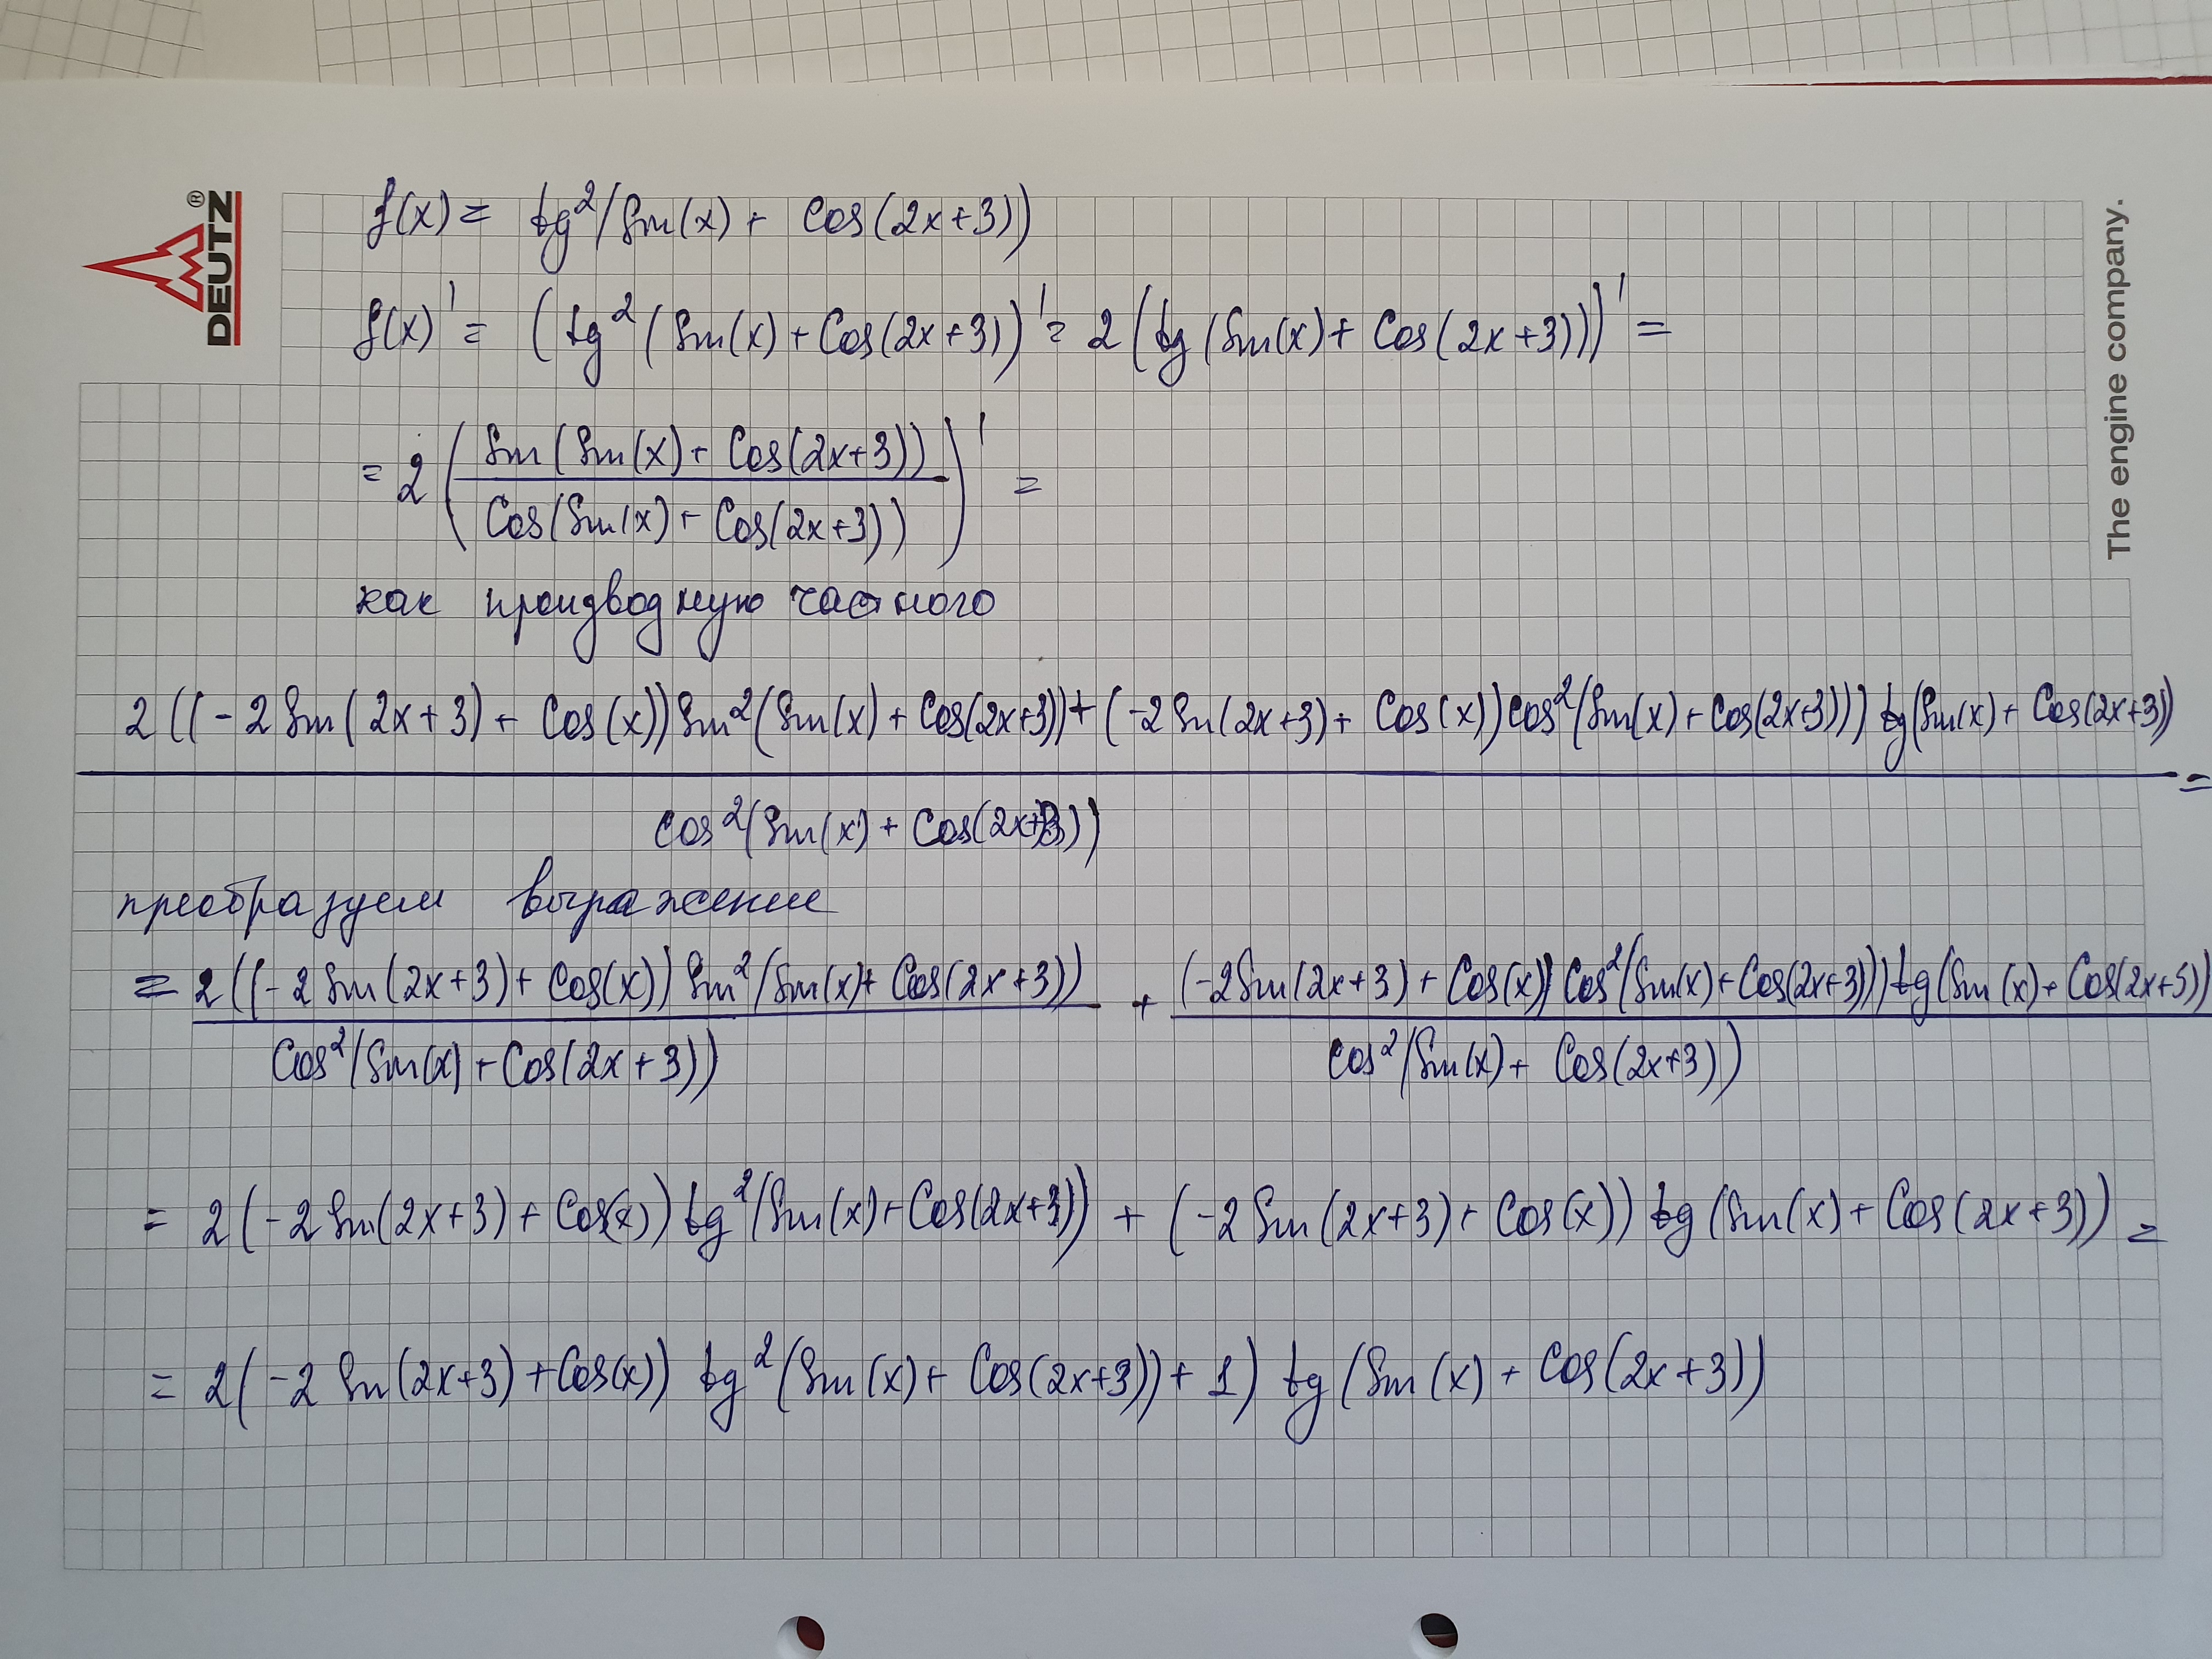 DEUTZ ®
f(x) = tg²(sin(x) + cos(2x+3))
f(x)' = (tg²(sin(x) + cos(2x+3))' = 2(tg(sin(x) + cos(2x+3)))' =
= 2(sin(sin(x) + cos(2x+3)) / cos(sin(x) + cos(2x+3)))' =
как производную частного
2((-2sin(2x+3) + cos(x))sin²(sin(x) + cos(2x+3)) + (-2sin(2x+3) + cos(x))cos²(sin(x) + cos(2x+3))) tg(sin(x) + cos(2x+3)) =
cos²(sin(x) + cos(2x+3))
преобразуем выражение
= 2((-2sin(2x+3) + cos(x))sin²(sin(x) + cos(2x+3)) + (-2sin(2x+3) + cos(x))cos²(sin(x) + cos(2x+3))) tg(sin(x) + cos(2x+3))
cos²(sin(x) + cos(2x+3)) cos²(sin(x) + cos(2x+3))
= 2(-2sin(2x+3) + cos(x)) tg²(sin(x) + cos(2x+3)) + (-2sin(2x+3) + cos(x)) tg(sin(x) + cos(2x+3)) =
= 2(-2sin(2x+3) + cos(x)) tg²(sin(x) + cos(2x+3)) + 1) tg(sin(x) + cos(2x+3))
The engine company.